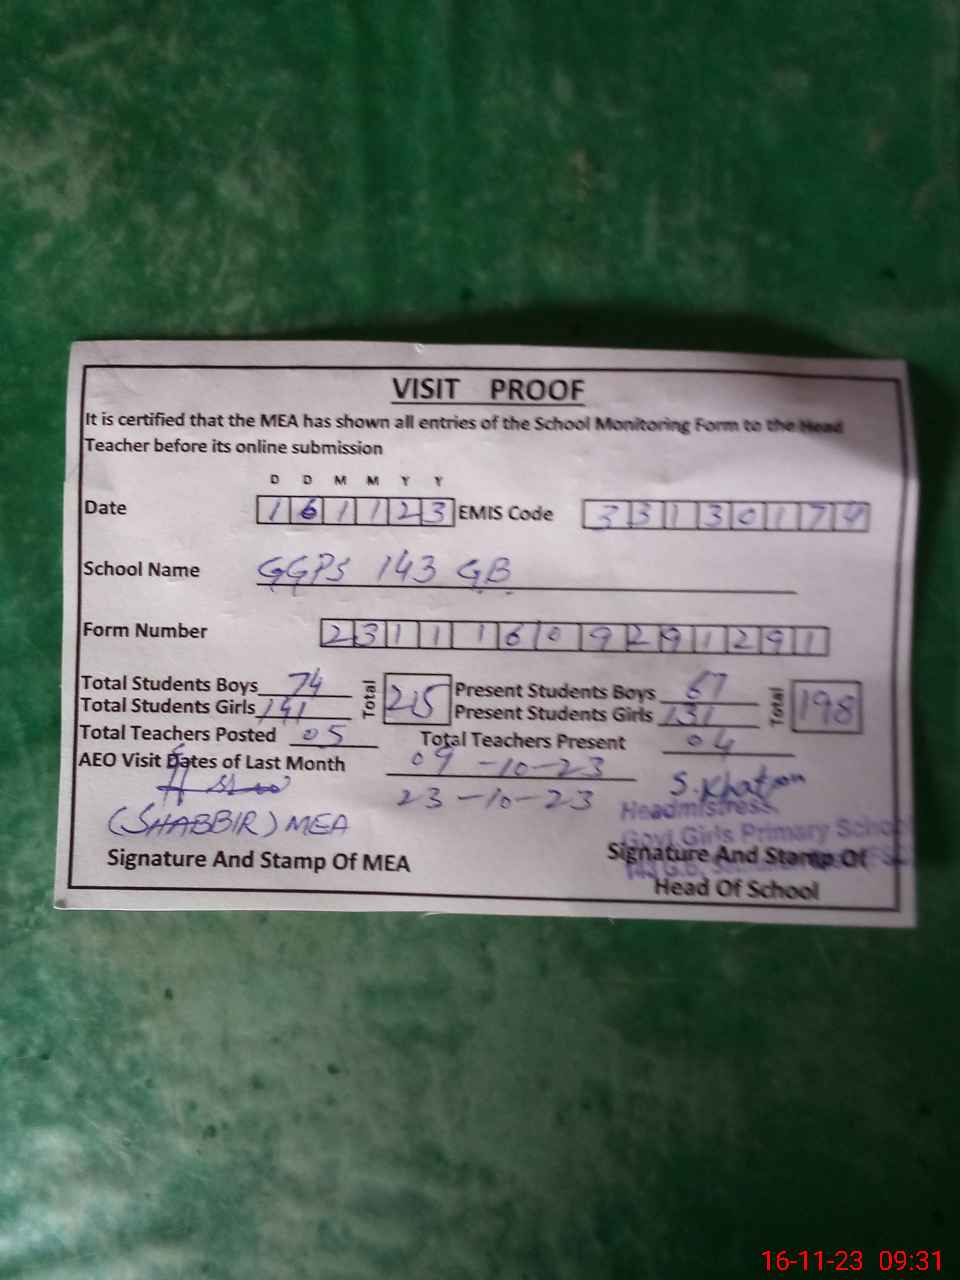 VISIT PROOF
It is certified that the MEA has shown all entries of the School Monitoring Form to the Head
Teacher before its online submission
D D M M Y Y
Date 1 6 1 1 2 3 EMIS Code 3 3 1 3 0 1 7 4
School Name GGPS 143 GB
Form Number 2 3 1 1 1 6 0 9 2 9 1 2 9 1
Total Students Boys 74 Total 215 Present Students Boys 67 Total 198
Total Students Girls 141 Present Students Girls 131
Total Teachers Posted 05 Total Teachers Present 04
AEO Visit Dates of Last Month 09-10-23
23-10-23 S. Khatoon
(SHABBIR) MEA Headmistress
Govt Girls Primary School
Signature And Stamp Of MEA Signature And Stamp Of
Head Of School
16-11-23 09:31